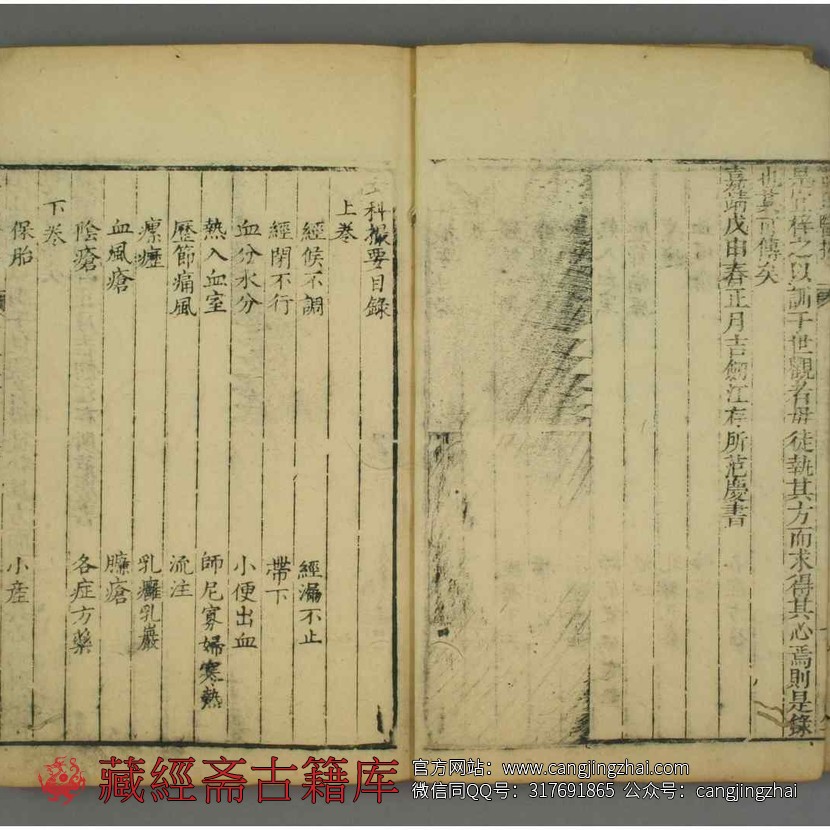 是官梓之以訓于世觀者毋徒執其方而求得其心焉則是錄
也其可傳矣
嘉靖戊申春正月吉劒江存所范慶書
科撮要目錄
上卷
經候不調 經漏不止
經閉不行 帶下
血分水分 小便出血
熱入血室 師尼寡婦寒熱
歷節痛風 流注
瘰癧 乳癰乳巖
血風瘡 臁瘡
陰瘡 各症方藥
下卷
保胎 小產
藏經斋古籍库
官方网站：www.cangjingzhai.com
微信同QQ号：317691865 公众号：cangjingzhai